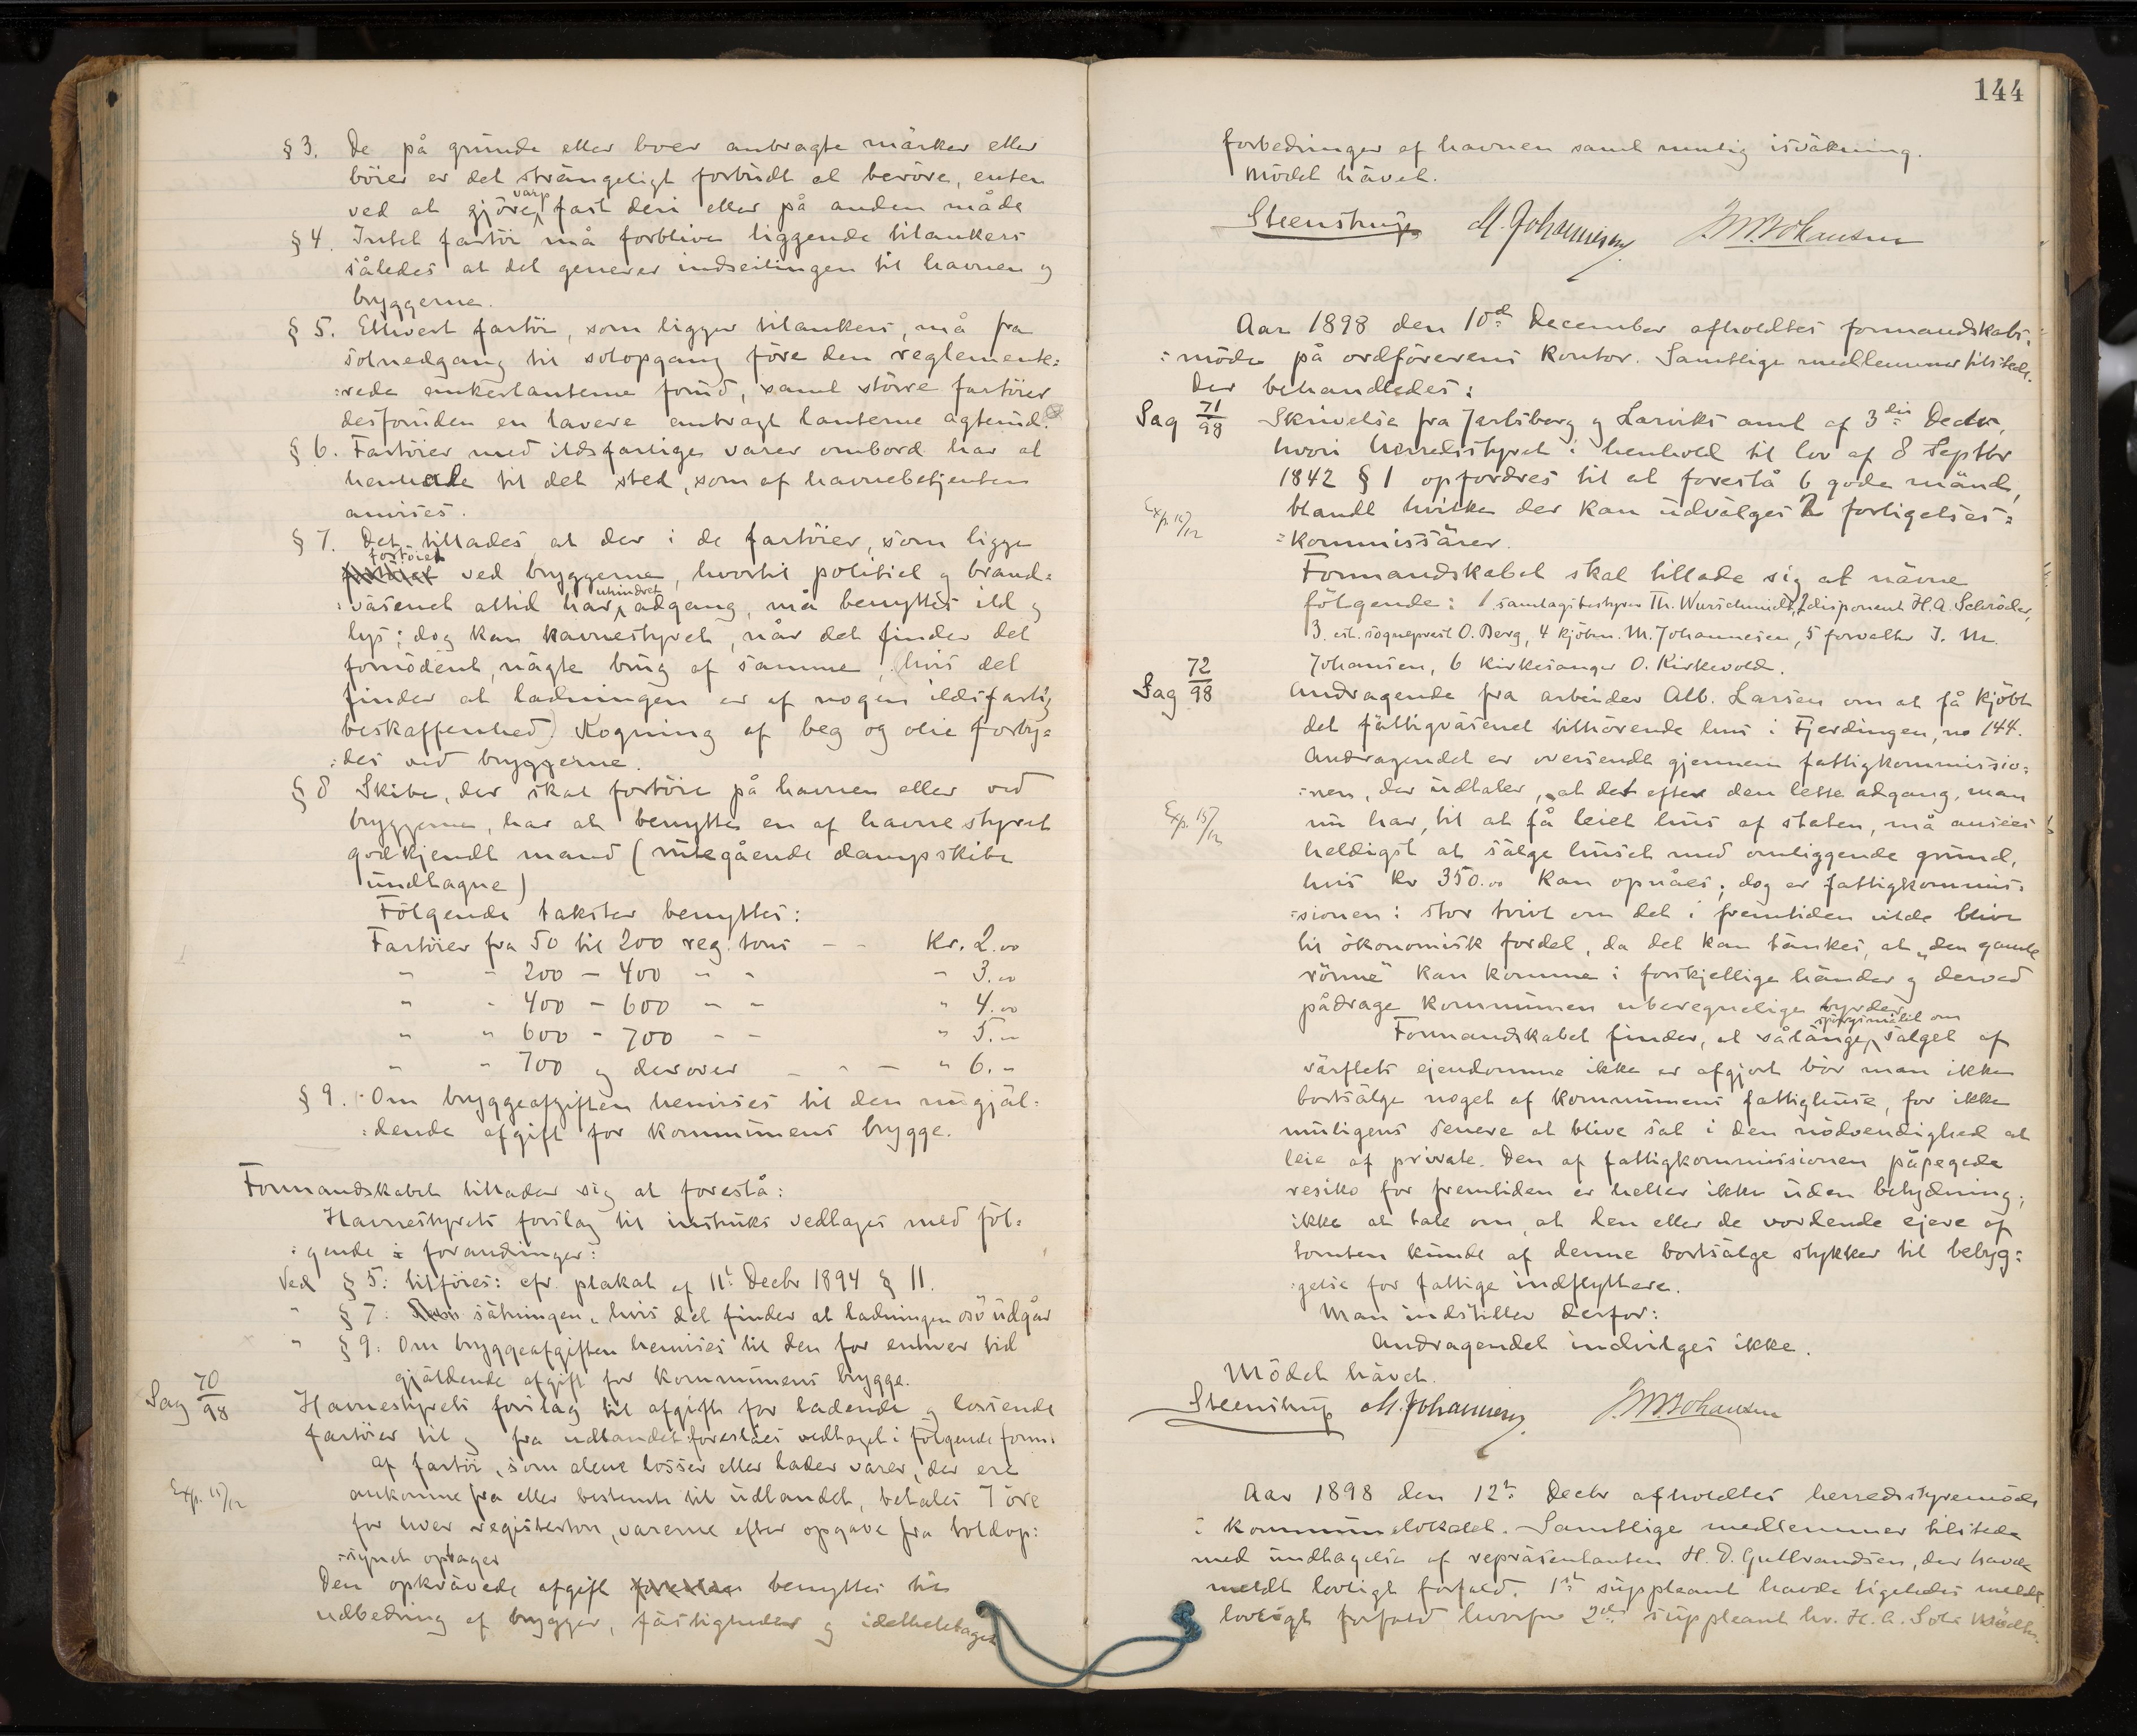 § 3. De på grunde eller boer anbragte märker eller
böier er det strängeligt forbudt at beröre, enten
ved at gjöre varp fast deri eller på anden måde
§ 4. Intet fartöi må forblive liggende tilankers
således at det generer indseilingen til havnen og
bryggerne.
§ 5. Ethvert fartöi, som ligger tilankers, må fra
solnedgang til solopgang före den reglemente=
=rede ankerlanterne forud, samt större fartöier
desforuden en lavere anbragt lanterne agterud.
§ 6. Fartöier med ildsfarlige varer ombord har at
henhale til det sted, som af havnebetjenten
anvises.
§ 7. Det tillades at der i de fartöier, som ligge
fortöiet ved bryggerne, hvortil politiet og brand=
=väsenet altid har uhindret adgang, må benyttes ild og
lys; dog kan havnestyret, når det finder det
fornödent, nägte brug af samme, (hvis det
finder at ladningen er af nogen ildsfarlig
beskaffenhed) Kogning af beg og olie forby=
=des ved bryggerne.
§ 8 Skibe, der skal fortöie på havnen eller ved
bryggerne, har at benytte en af havnestyret
godkjendt mand (rutegående dampskibe
undtagne)
Fölgende takster benyttes:
Fartöier fra 50 til 200 reg. tons - - Kr. 2.00
" " 200 - 400 " " " 3.00
" " 400 - 600 " " " 4.00
" " 600 - 700 " " " 5."
" " 700 og derover - - - " 6."
§ 9. Om bryggeafgiften henvises til den nugjäl=
=dende afgift for kommunens brygge.
Formandskabet tillader sig at foreslå:
Havnestyrets forslag til instruks vedtages med föl=
=gende forandringer:
Ved § 5: tilföies: cfr. plakat af 11t. Decbr 1894 § 11.
" § 7: sätningen "hvis det finder at ladningen osv udgår
" § 9: Om bryggeafgiften henvises til den for enhver tid
gjäldende afgift for kommunens brygge.
Sag 70/98 Havnestyrets forslag til afgift for ladende og lossende
fartöier til og fra udlandet foreslåes vedtaget i fölgende form:
Af fartöi, som alene losser eller lader varer, der ere
Exp. 15/12 ankomne fra eller bestemte til udlandet, betales 7 öre
for hver registerton, varerne efter opgave fra toldop=
=synet optager
Den opkrävede afgift benyttes til
udbedring af brygger, fästigheder og idethele taget
144
forbedringer af havnen samt mulig isväkning.
Mödet hävet.
Steenstrup M. Johannesen J. M. Johansen
Aar 1898 den 10de December afholdtes formandskabs=
=möde på ordförerens kontor. Samtlige medlemmer tilstede.
Der behandledes:
Sag 71/98 Skrivelse fra Jarlsberg og Larviks amt af 3die Decbr,
hvori herredsstyret i henhold til lov af 8 Septbr
1842 § 1 opfordres til at foreslå 6 gode mänd,
Exp. 15/12 blandt hvilke der kan udvälges 2 forligelses=
=kommissärer.
Formandskabet skal tillade sig at nävne
fölgende: 1 samlagsbestyrer Th. Wurschmidt, 2 disponent H. A. Schröder,
3. est. sogneprest O. Berg, 4 kjöbm. M. Johannesen, 5 forvalter J. M.
Johansen, 6 Kirkesanger O. Kirkevold.
Sag 72/98 Andragende fra arbeider Alb. Larsen om at få kjöbt
det fattigväsenet tilhörende hus i Fjerdingen, no 144.
Andragendet er oversendt gjennem fattigkommissio=
=nen, der udtaler, at det efter den lette adgang, man
Exp. 15/12 nu har, til at få leiet hus af staten, må ansees
heldigst at sälge huset med omliggende grund,
hvis Kr 350.00 kan opnåes; dog er fattigkommis=
=sionen i stor tvivl om det i fremtiden vilde blive
til ökonomisk fordel, da det kan tänkes, at "den gamle
rönne" kan komme i forskjellige händer og derved
pådrage kommunen uberegnelige byrder.
Formandskabet finder, at sålänge spörgsmålet om salget af
värflets ejendomme ikke er afgjort bör man ikke
bortsälge noget af kommunens fattighuse, for ikke
muligens senere at blive sat i den nödvendighed at
leie af private. Den af fattigkommissionen påpegede
resiko for fremtiden er heller ikke uden betydning;
ikke at tale om, at den eller de vordende ejere af
tomten kunde af denne bortsälge stykker til bebyg=
=gelse for fattige indflyttere.
Man indstiller derfor:
Andragendet indvilges ikke.
Mödet hävet.
Steenstrup M. Johannesen J. M. Johansen
Aar 1898 den 12te Decbr afholdtes herredsstyremöde
i kommunelokalet. Samtlige medlemmer tilstede
med undtagelse af repräsentanten H. D. Gulbrandsen, der havde
meldt lovligt forfald. 1ste suppleant havde ligeledes meldt
lovligt forfald hvorfor 2den suppleant hr. H. A. Sole mödte.